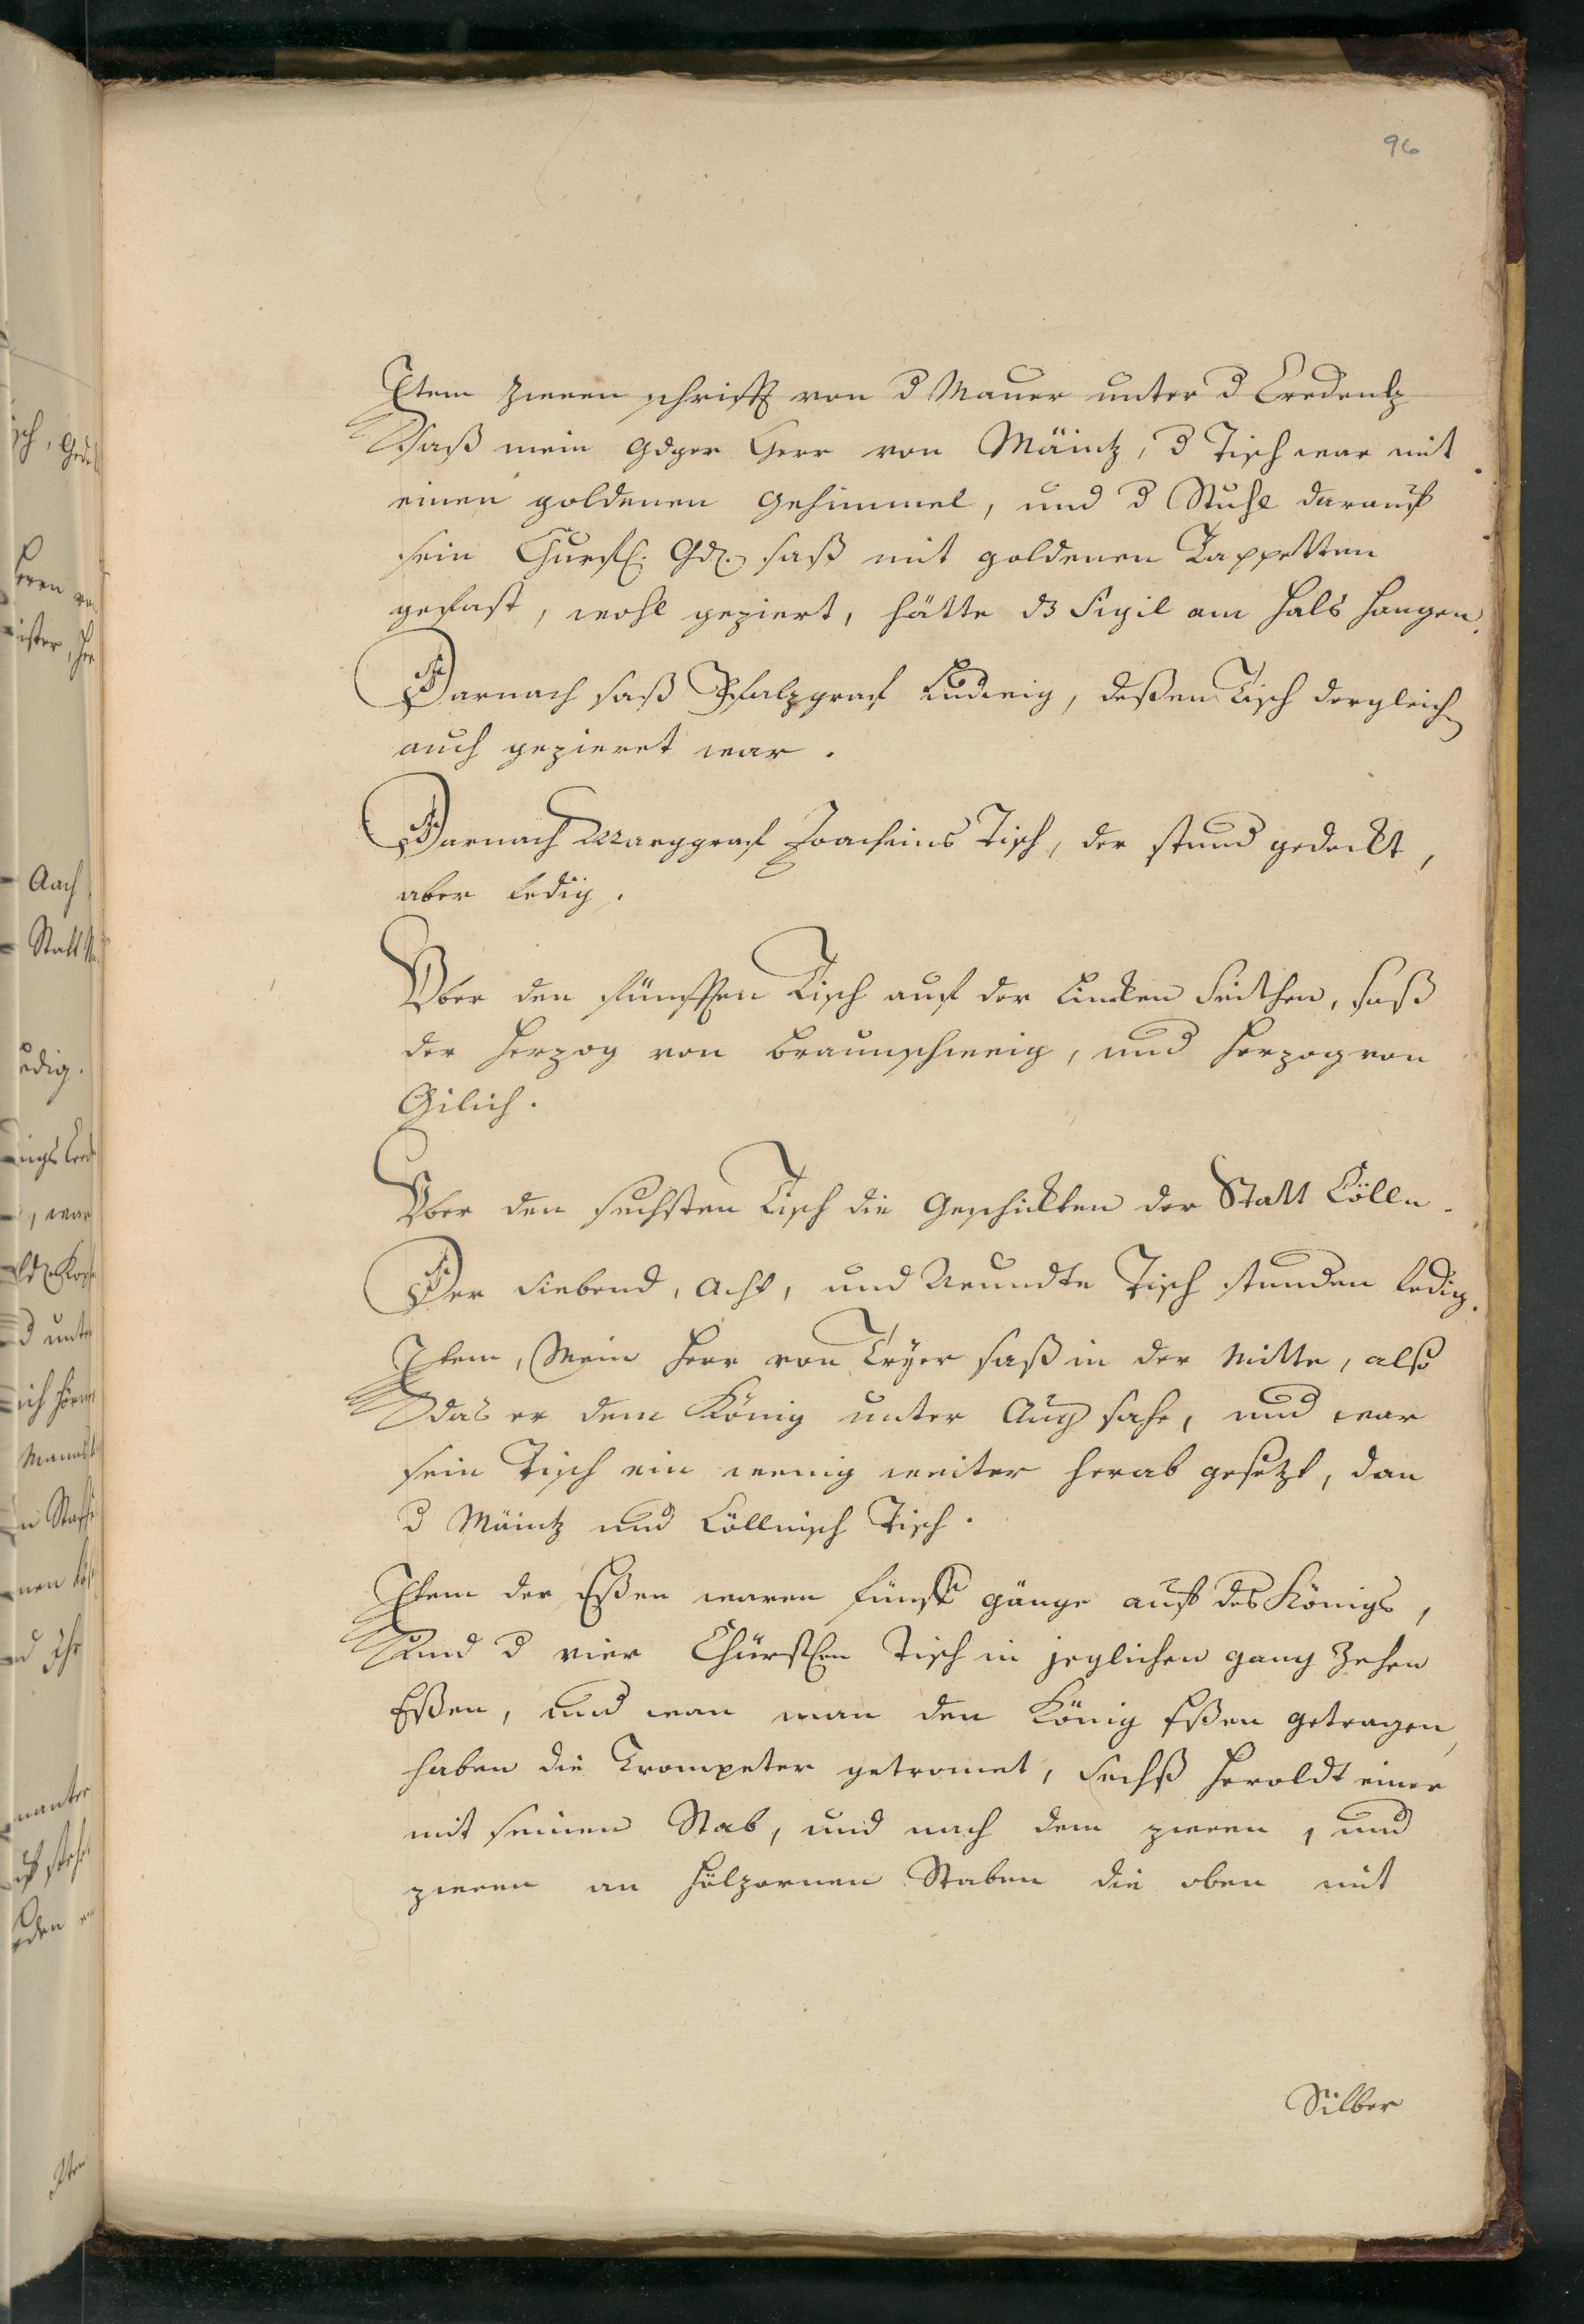 96
Item zween schritt von d Mauer unter d Credentz
saß mein gdger Herr von Mäintz, d Tisch war mit
einen goldenen Gehimmel, und d Stuhl darauff
sein Churfl. Gd. saß mit goldenen Tappetten
gefast, wohl geziert, hätte dz Sigil am Hals hangen.
Darnach saß Pfalzgraf Ludwig, deßen Tisch dergleichn
auch gezieret war.
Darnach Marggraf Joachims Tisch, der stund gedeckt,
aber ledig.
Vber den fünfften Tisch auf der Lincken Seithen, saß
der Herzog von Braunschweig, und Herzog von
Gilich.
Vber den sechsten Tisch die Geschickten der Statt Cölln.
Der Siebend, Acht, und Neundte Tisch stunden ledig.
Item, Mein Herr von Tryer saß in der Mitte, alß
das er dem König unter Aug sahe, und war
sein Tisch ein wenig weiter herab gesetzt, dan
d Mäintz und Cöllnisch Tisch.
Item der Eßen waren fünff gänge auff des Königs,
und d vier Chürsten Tisch in jeglichen gang Zehen
Eßen, und wan man den König Eßen getragen,
haben die Trompeter getromet, Sechß Heroldt einer
mit seinen Stab, und nach dem zween, und
zween an hölzernen Staben die oben mit
Silber